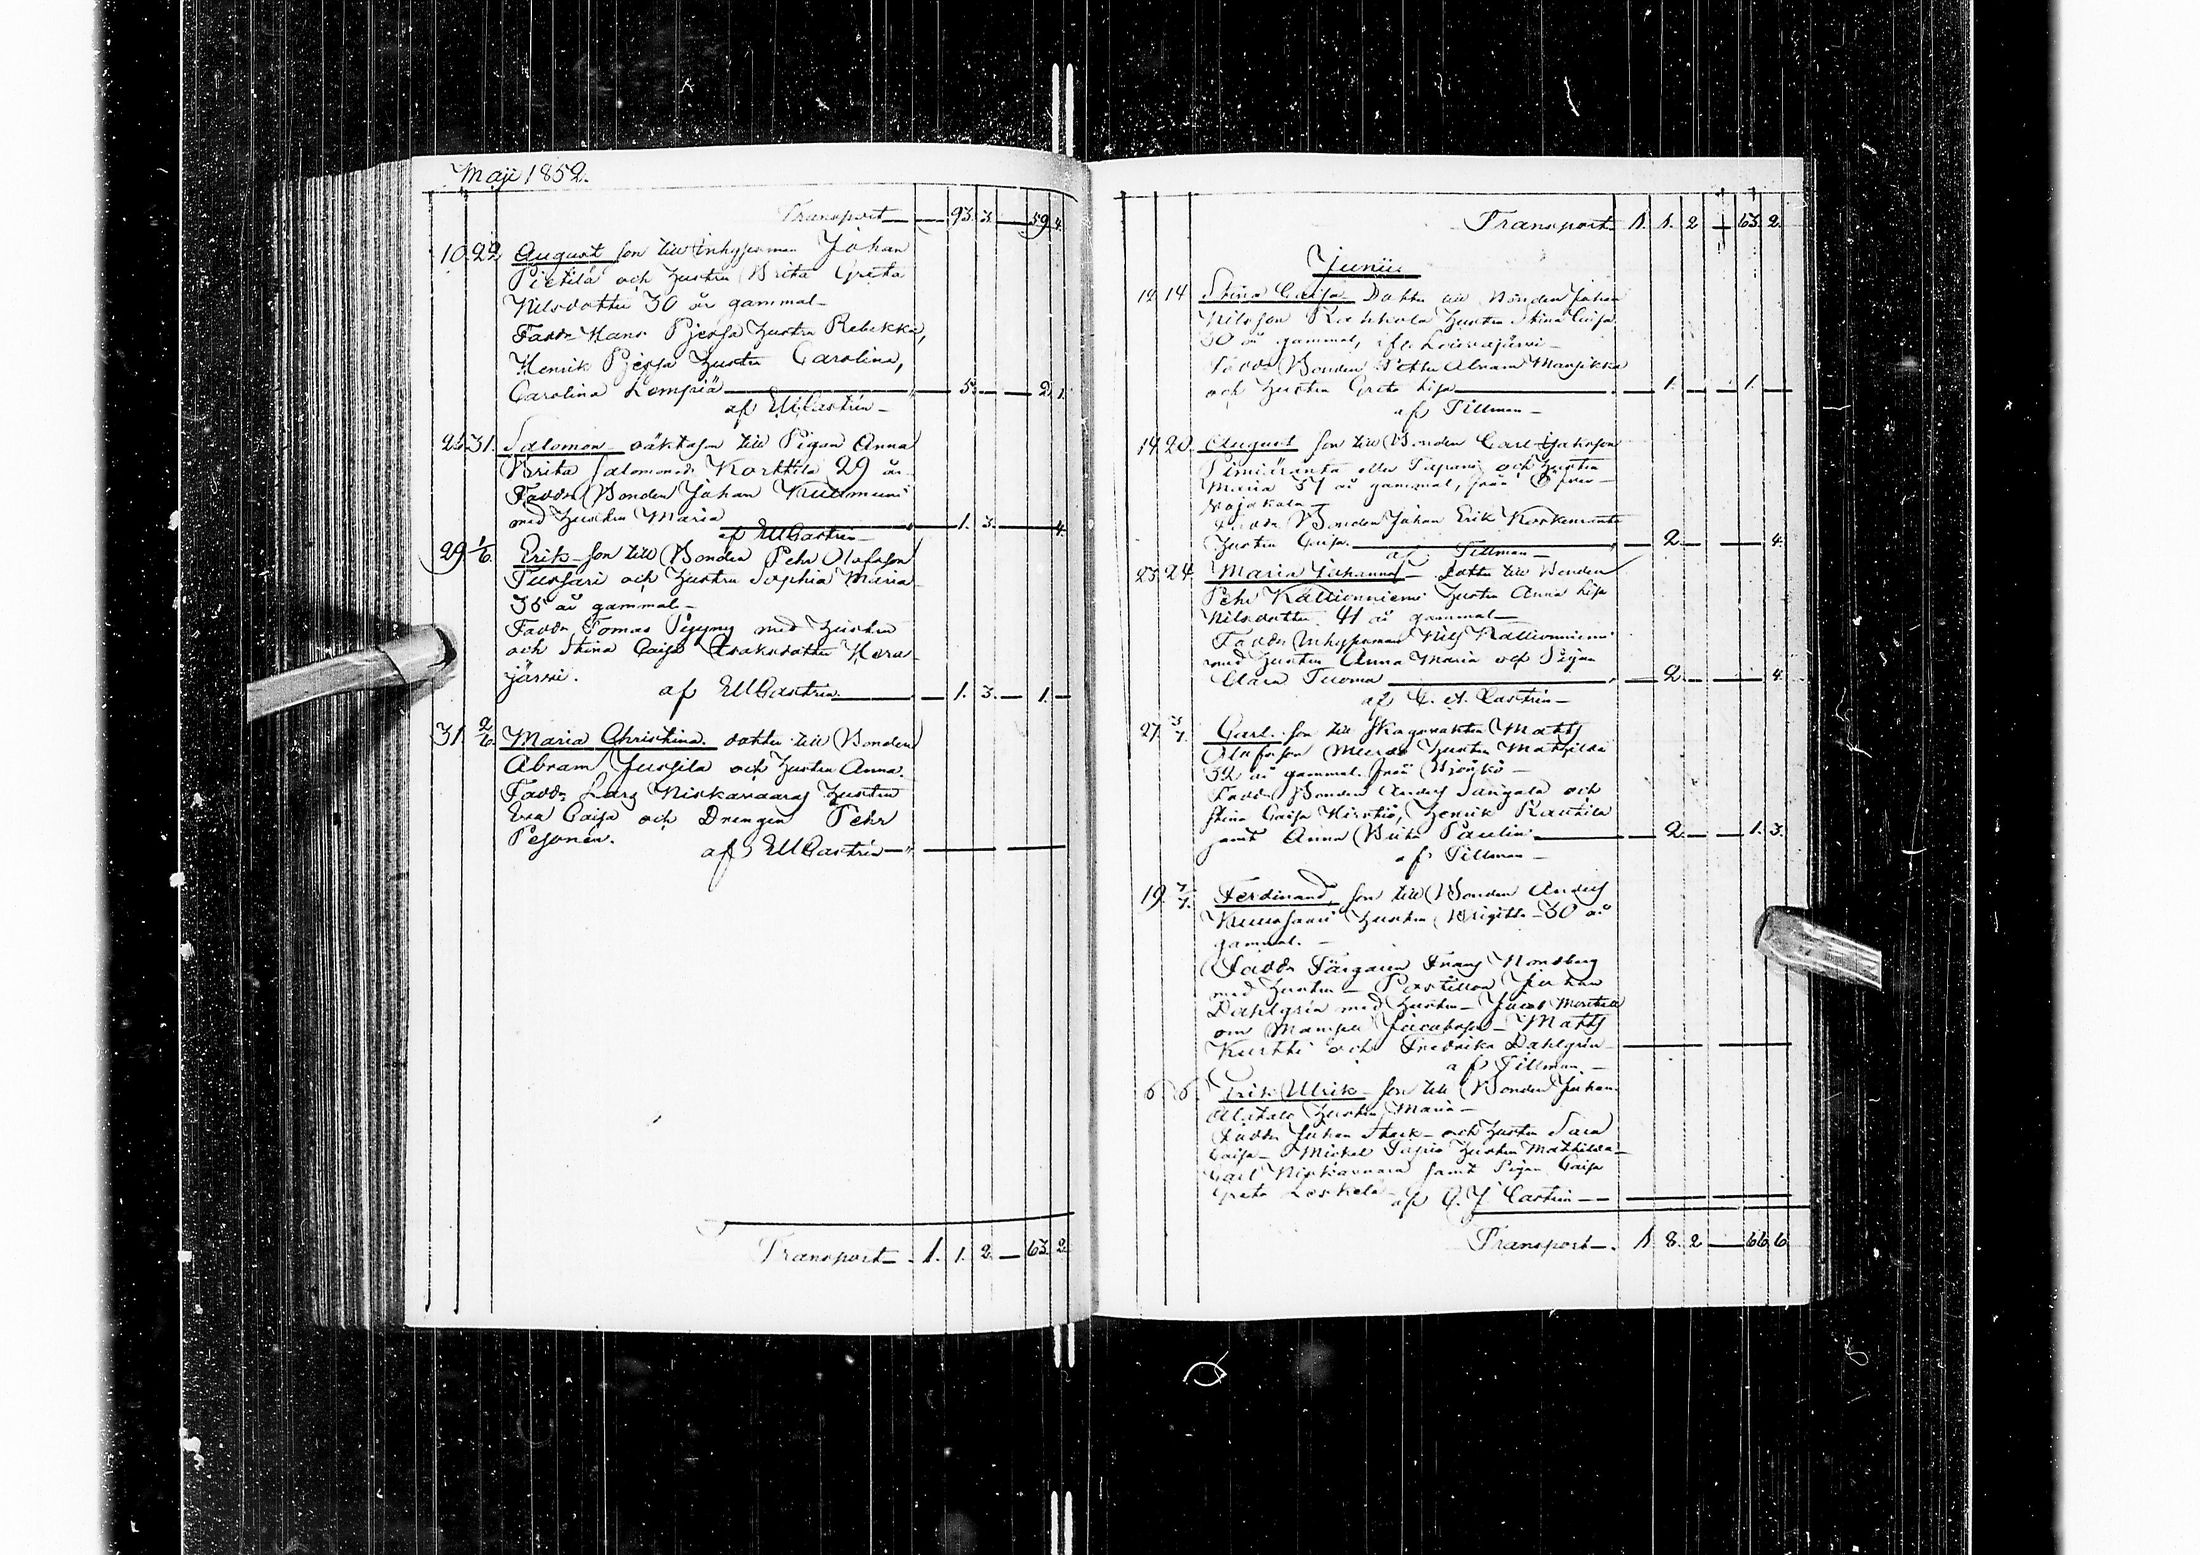 Maji 1852.
Transport — 93. 3. — 59 4.
10. 22 August son till Inhysman Johan
Pietilä och hustru Brita Greta
Nilsdotter 30 år gammal —
Faddr Hans Pjessa hustru Rebekka,
Henrik Pjessa hustru Carolina,
Carolina Lempiä — 5. — 2 1.
af EMCastrén —
31. Salomon oäkta son till Pigan Anna
Brita Salomonsd. Korttila 29 år
Faddr Bonden Johan
med hustru Maria — 1. 3. — 4.
af EMCastrén —
29 1/6. Erik son till Bonden Pehr Olofsson
Tussari och hustru Sophia Maria
35 år gammal —
Faddr Tomas med hustru
och Stina Caisa Isaksdotter Hera-
järvi.
af EMCastrén — 1. 3. — 1. —
31. 2/6. Maria Christina dotter till Bonden
Abram Jussila och hustru Anna.
Faddr Lars Niskavaara hustru
Eva Caisa och Drengen Pehr
Pesonen.
af EMCastrén —
Transport — 1. 1. 2. — 63. 2
Transport 1. 1. 2 — 63. 2.
Junii
14 Stina Caisa Dotter till Bonden Johan
Nilsson hustru Stina Caisa
30 år gammal,
Faddr Bonden Petter Abram Mansikka
och hustru Greta Lisa — 1. — 1. —
af Tillman —
14. 20. August son till Bonden Carl
eller Tapani och hustru
Maria 37 år gammal, från
Faddr Bonden Johan Erik
hustru Caisa — 2. — 4.
af Tillman —
23. 24. Maria Johanna Dotter till Bonden
Pehr Kallionniemi hustru Anna Lisa
Nilsdotter 41 år gammal —
Faddr Inhysman Nils Kallionniemi
med hustru Anna Maria och Pigan
Clara Tuoma — 2. — 4.
af Castrén —
27. Carl son till Matts
Olofsson hustru Mathilda
32 år gammal från
Faddr Bonden Anders Sangala och
Stina Caisa Henrik Rautila
samt Anna Brita Paulin — 2. — 1. 3.
af Tillman —
19. Ferdinand, son till Bonden Anders
hustru Brigitta 30 år
gammal. —
Faddr Färgaren Frans Nordberg
med hustru — Postillon Johan
Dahlgrén med hustru — Jacob
Mamsell Jacobsson — Matts
Kurtti och Fredrika Dahlgrén —
af Tillman. —
Erik Ulrik son till Bonden Johan
Alatalo hustru Maria —
Faddr Johan Stark och hustru Sara
Caisa — Mickel hustru Mathilda —
Carl Niskavaara samt Pigan Caisa
Greta Leskelä
af Castrén —
Transport — 1. 8. 2 — 66. 6